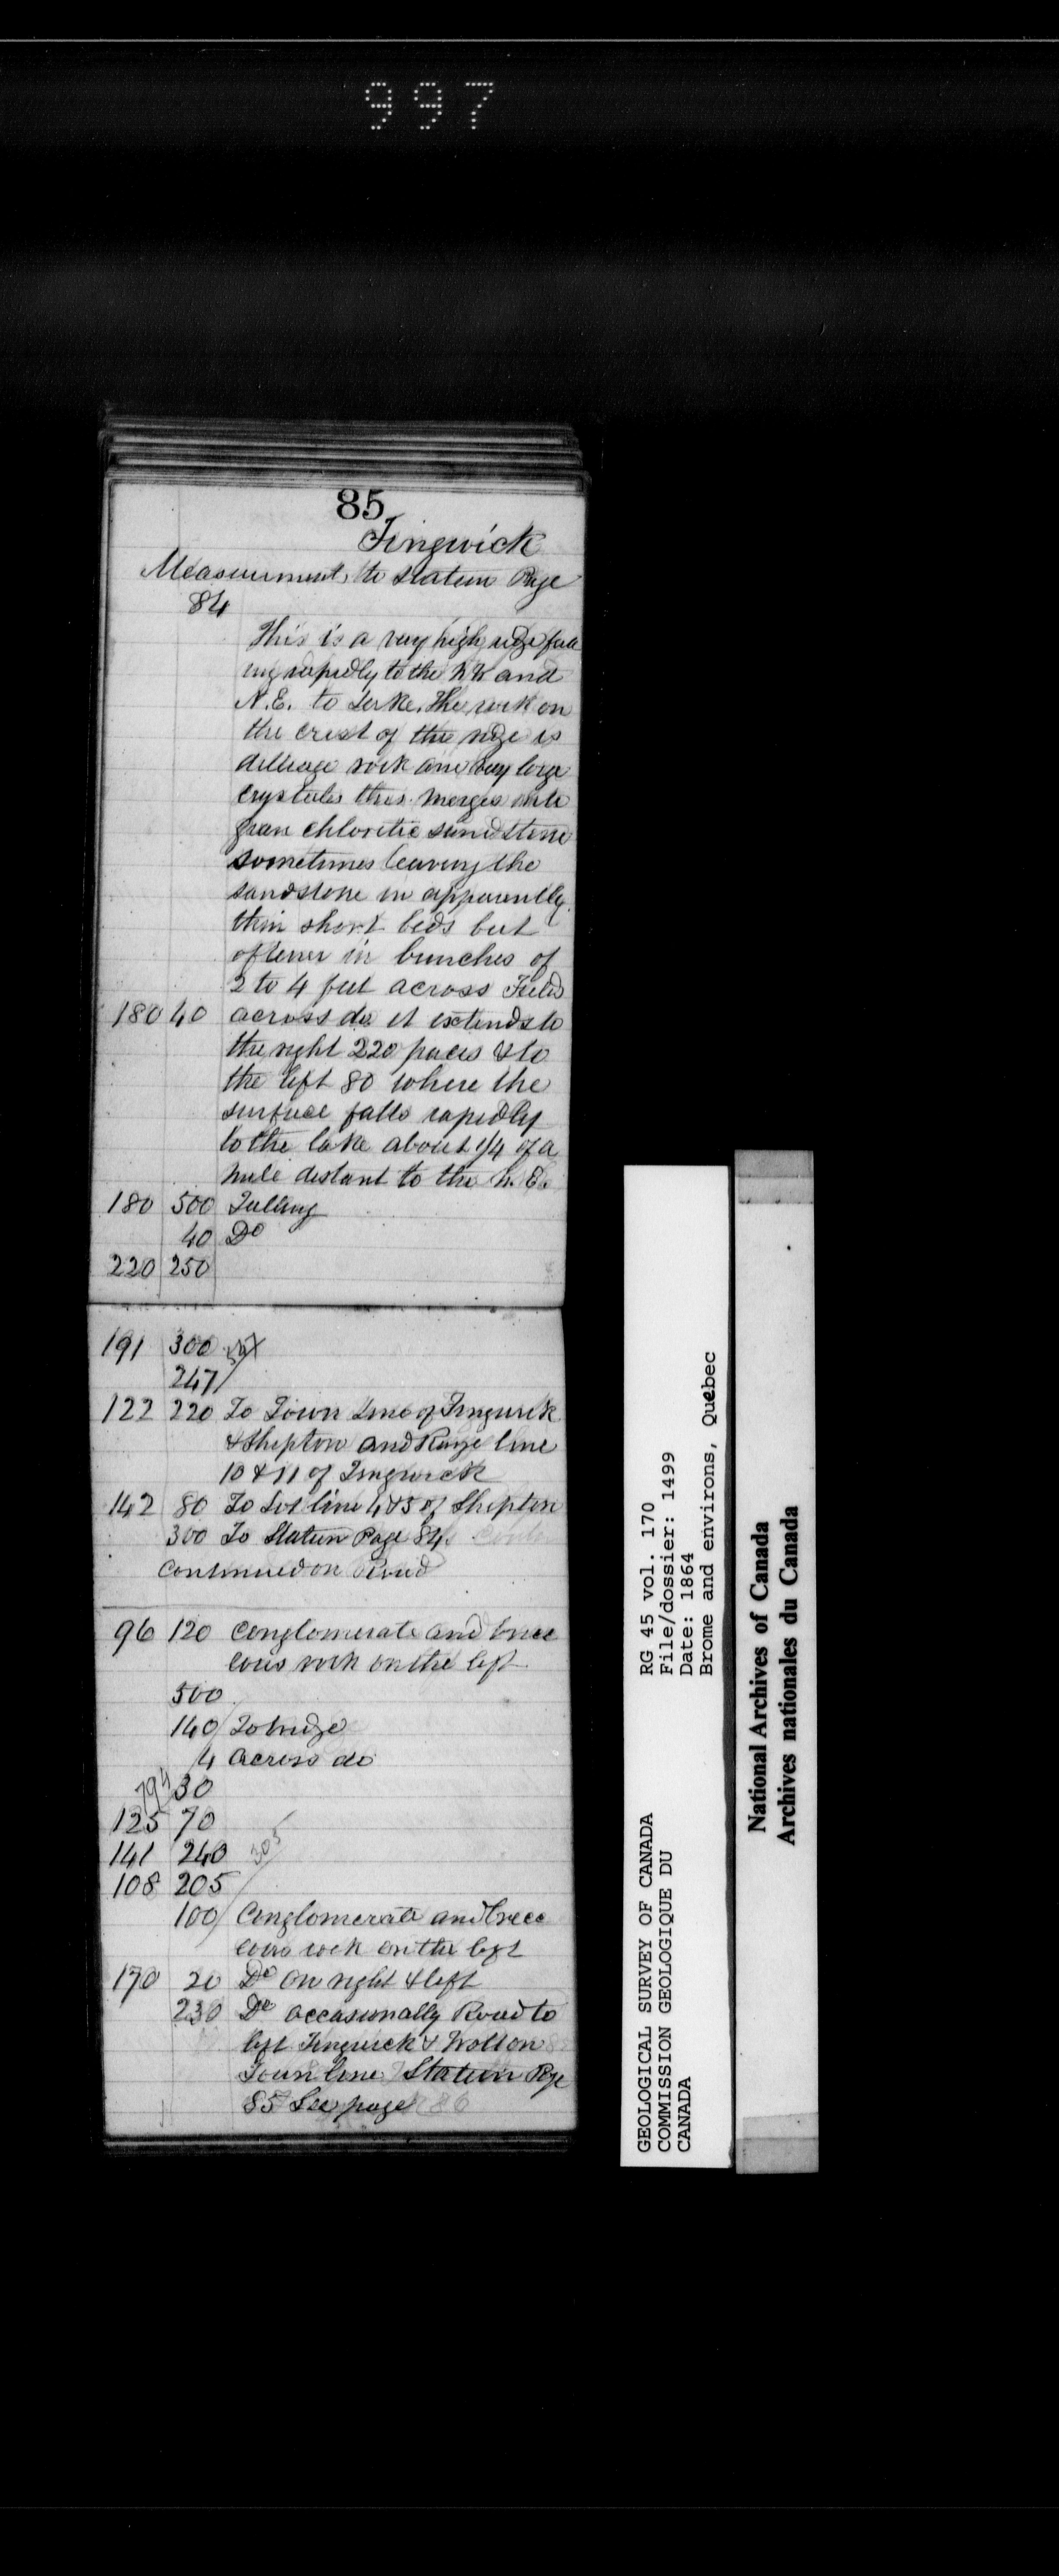 997
85
Tingwick
Measurement to Station Page
84
This is a very high ridge fall
ing rapidly to the NW and
N.E. to Lake. The rock on
the crest of the ridge is
diallage rock and very large
crystals this merges into
green chloritic sandstone
sometimes leaving the
sandstone in apparently
thin short beds but
oftener in bunches of
2 to 4 feet across Field
180 40 across do it extends to
the right 220 paces & to
the left 80 where the
surface falls rapidly
to the lake about 1/4 of a
mile distant to the N.E.
180 500
40 Do
220 250
191 300
247
122 220 To Town Line of Tingwick
& Shipton and Range line
10 & 11 of Tingwick
142 80 To Lot line 4 & 5 of Shipton
300 To Station Page 84
Continued on Road
96 120 Conglomerate and brec
cous rock on the left
500
140 To bridge
4 across do
794 30
125 70
141 240 305
108 205
100 Conglomerate and brecc
cous rock on the left
170 20 Do on right & left
230 Do occasionally Road to
left Tingwick & Wotton
Town line Station Page
85 See page 86
GEOLOGICAL SURVEY OF CANADA
COMMISSION GEOLOGIQUE DU
CANADA
RG 45 vol. 170
File/dossier: 1499
Date: 1864
Brome and environs, Quebec
National Archives of Canada
Archives nationales du Canada